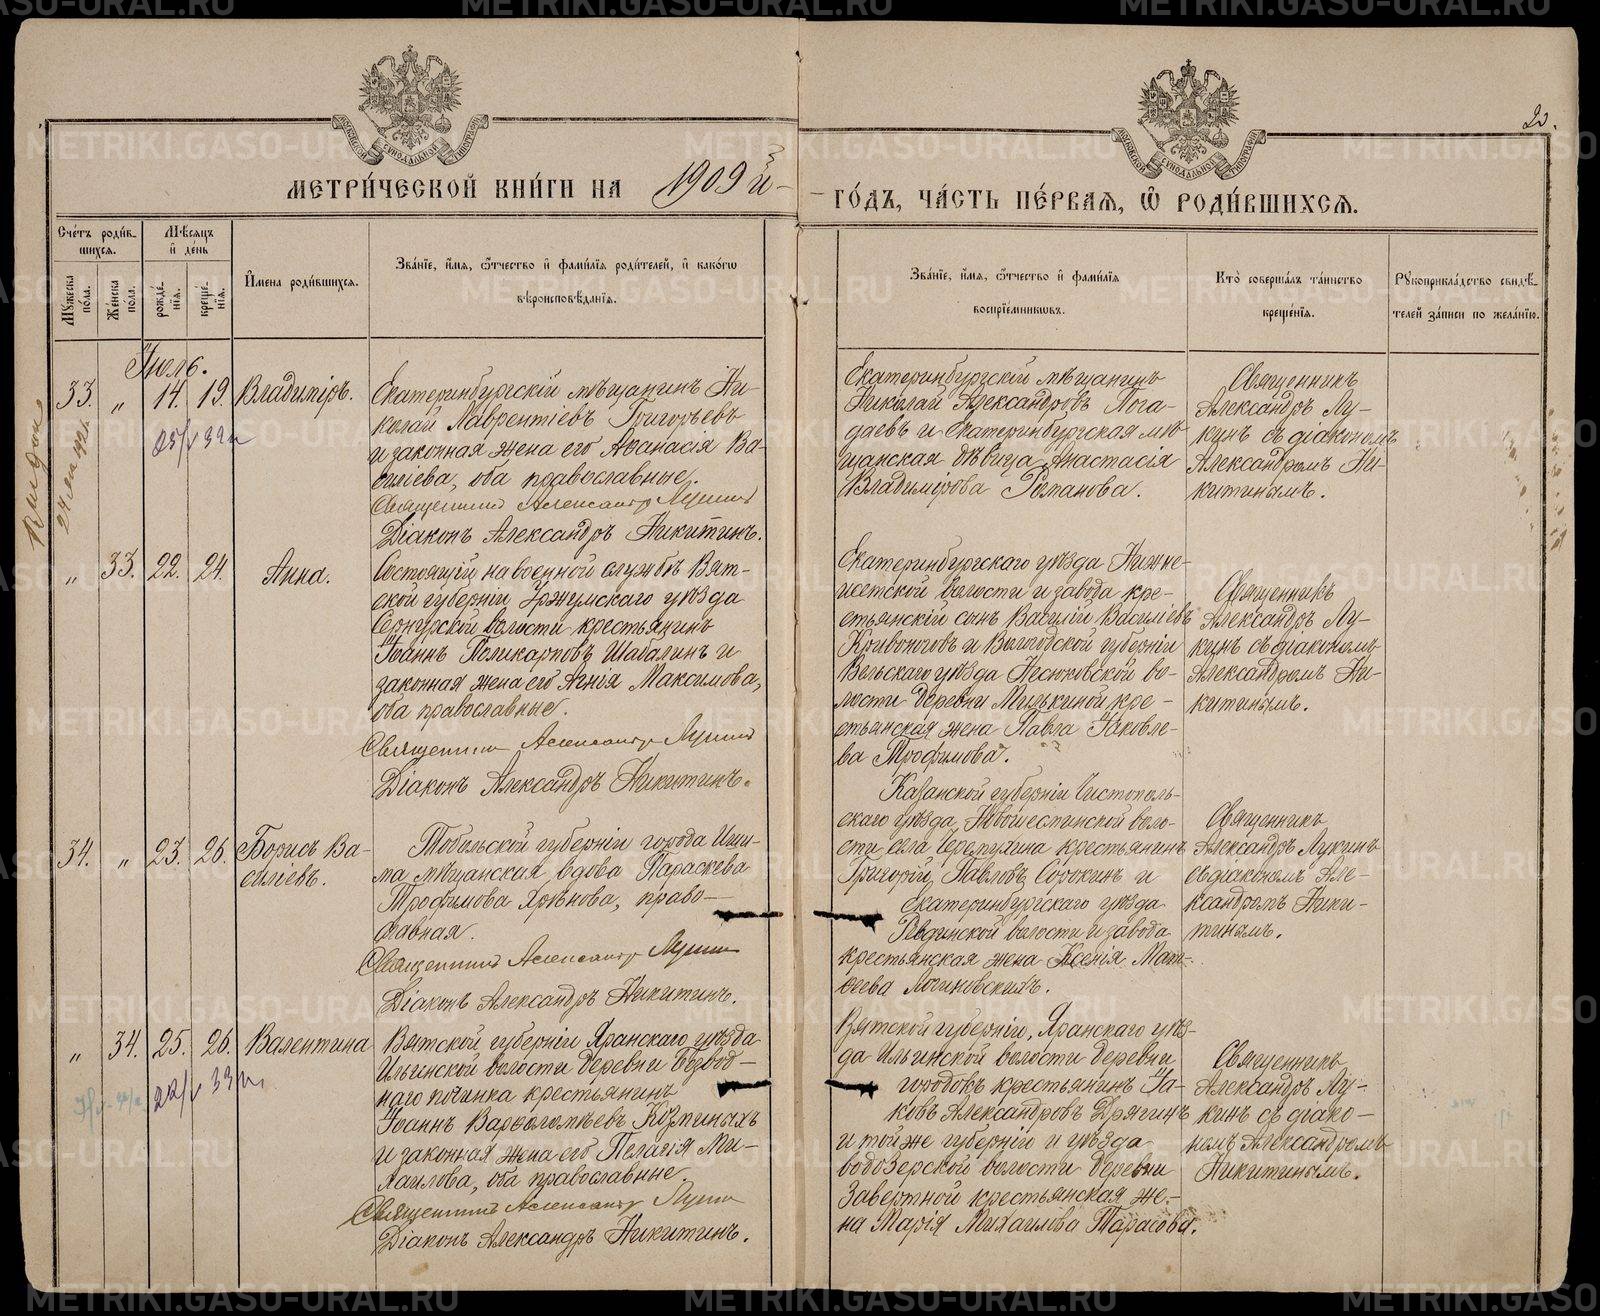 20.
МЕТРИ́ЧЕСКОЙ КНИ́ГИ НА 1909й
ГО́ДЪ, ЧА́СТЬ ПЕ́РВАЯ, Ѽ РОДИ́ВШИХСЯ.
МОСКОВСКОЙ СѴНОДАЛЬНОЙ ТИПОГРАФІИ
МОСКОВСКОЙ СѴНОДАЛЬНОЙ ТИПОГРАФІИ
Сче́тъ роди́в-
шихся.
Му́жеска
по́ла.
Же́нска
по́ла.
Мѣ́сяцъ
и де́нь
рожде́-
нія.
креще́-
нія.
И́мена роди́вшихся.
Зва́ніе, и́мя, ѻ́тчество и фами́лія роди́телей, и како́гѡ
вѣроисповѣ́данія.
Зва́ніе, и́мя, ѻ́тчество и фами́лія
воспріе́мникѡвъ.
Кто̀ соверша́лъ та́инство
креще́нія.
Рꙋкоприкла́дство свидѣ́-
телей за́писи по жела́нію.
Іюль.
33. " 14. 19. Владиміръ.
25/V 39
24
Екатеринбургскій мѣщанинъ Ни-
колай Лаврентіевъ Григорьевъ
и законная жена его Аѳанасія Ва-
силіева, оба православные.
Священникъ Александръ Лукинъ
Діаконъ Александръ Никитинъ.
Екатеринбургскій мѣщанинъ
Николай Александровъ Пога-
даевъ и Екатеринбургская мѣ-
щанская дѣвица Анастасія
Владимірова Романова.
Священникъ
Александръ Лу-
кинъ съ діакономъ
Александромъ Ни-
китинымъ.
" 33. 22. 24. Анна.
Состоящій на военной службѣ Вят-
ской губерніи Уржумскаго уѣзда
Сернурской волости крестьянинъ
Іоаннъ Поликарповъ Шабалинъ и
законная жена его Агнія Максимова,
оба православные.
Священникъ Александръ Лукинъ
Діаконъ Александръ Никитинъ.
Екатеринбургскаго уѣзда Нижне-
исетской волости и завода кре-
стьянскій сынъ Василій Василіевъ
Кривоноговъ и Вологодской губерніи
Вельскаго уѣзда Есюковской во-
лости деревни Милькиной кре-
стьянская жена Павла Іаковле-
ва Трофимова.
Священникъ
Александръ Лу-
кинъ съ діакономъ
Александромъ Ни-
китинымъ.
34. " 23. 26. Борисъ Ва-
силіевъ.
Тобольской губерніи города Иши-
ма мѣщанская вдова Параскева
Трофимова Хрѣнова, право-
славная.
Священникъ Александръ Лукинъ
Діаконъ Александръ Никитинъ.
Казанской губерніи Чистополь-
скаго уѣзда, Новошешминской воло-
сти села крестьянинъ
Григорій Павловъ Сорокинъ и
Екатеринбургскаго уѣзда
Ревдинской волости и завода
крестьянская жена Ксенія Мат-
ѳеева Логиновскихъ.
Священникъ
Александръ Лукинъ
съ діакономъ Але-
ксандромъ Ники-
тинымъ.
" 34. 25. 26. Валентина
22/V 33
Вятской губерніи Яранскаго уѣзда
Ильинской волости деревни Безвод-
наго починка крестьянинъ
Іоаннъ Варѳоломѣевъ Козминыхъ
и законная жена его Пелагія Ми-
хаилова, оба православные.
Священникъ Александръ Лукинъ
Діаконъ Александръ Никитинъ.
Вятской губерніи, Яранскаго уѣз-
да Ильинской волости деревни
городокъ крестьянинъ Іа-
ковъ Александровъ Дрягинъ
и той же губерніи и уѣзда
водозерской волости деревни
Завертной крестьянская же-
на Марія Михаилова Тарасова.
Священникъ
Александръ Лу-
кинъ съ діако-
номъ Александромъ
Никитинымъ.
METRIKI.GASO-URAL.RU